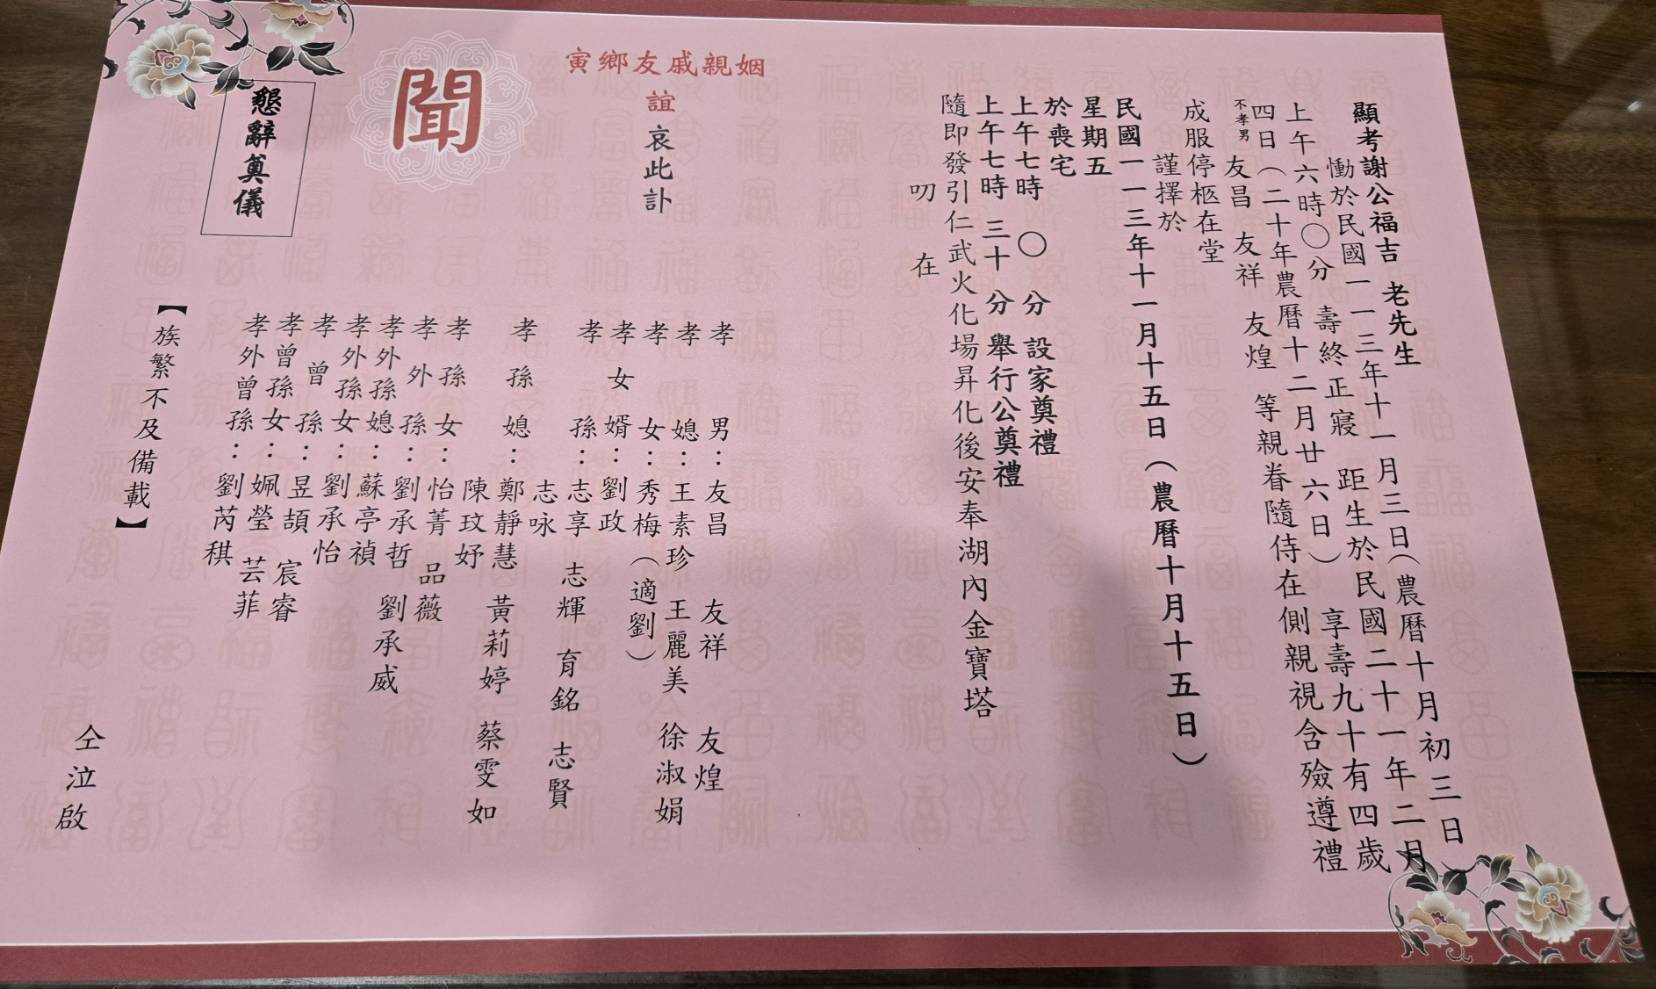 顯考謝公福吉 老先生
慟於民國一一三年十一月三日(農曆十月初三日)
上午六時〇分 壽終正寢 距生於民國二十一年二月
四日(二十年農曆十二月廿六日) 享壽九十有四歲
不孝男 友昌 友祥 友煌 等親眷隨侍在側親視含殮遵禮
成服停柩在堂
謹擇於
民國一一三年十一月十五日(農曆十月十五日)
星期五
於喪宅
上午七時 〇 分 設家奠禮
上午七時 三十 分 舉行公奠禮
隨即發引仁武火化場昇化後安奉湖內金寶塔
叨 在
寅鄉友戚親姻
誼 哀此訃
聞
懇辭奠儀
孝男:友昌 友祥 友煌
孝媳:王素珍 王麗美 徐淑娟
孝女:秀梅(適劉)
孝女婿:劉政
孝孫:志享 志輝 育銘 志賢
志咏
孝孫媳:鄭靜慧 黃莉婷 蔡雯如
陳玟妤
孝孫女:怡菁 品薇
孝外孫:劉承哲 劉承威
孝外孫媳:蘇亭禎
孝外孫女:劉承怡
孝曾孫:昱頡 宸睿
孝曾孫女:姵瑩 芸菲
孝外曾孫:劉芮稘
【族繁不及備載】
仝泣啟